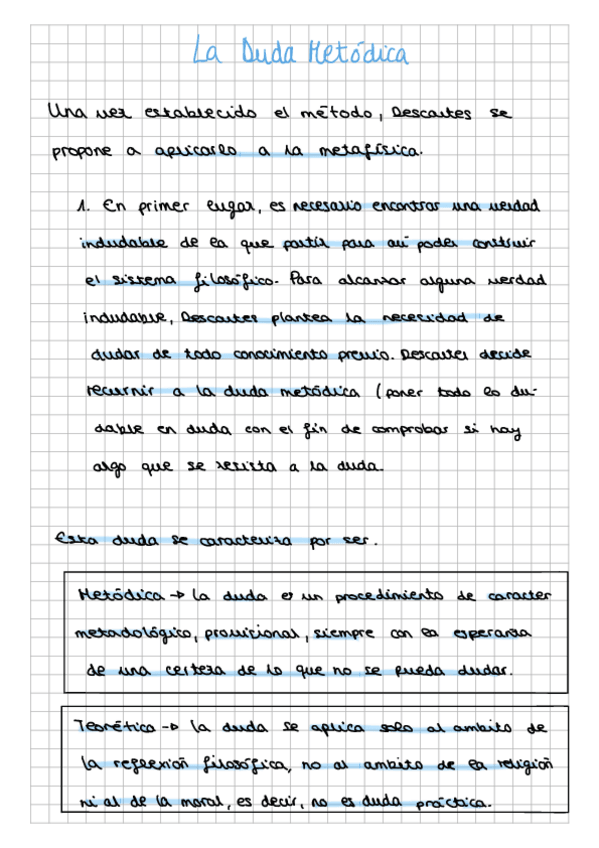 La Duda Metódica
Una vez establecido el método, Descartes se
propone a aplicarlo a la metafísica.
1. En primer lugar, es necesario encontrar una verdad
indudable de la que partir para así poder construir
el sistema filosófico. Para alcanzar alguna verdad
indudable, Descartes plantea la nececidad de
dudar de todo conocimiento previo. Descartes decide
recurrir a la duda metódica (poner todo lo du-
dable en duda con el fin de comprobar si hay
algo que se resista a la duda.
Esta duda se caracteriza por ser.
Metódica → La duda es un procedimiento de caracter
metodológico, provisional, siempre con la esperanza
de una certeza de lo que no se pueda dudar.
Teorética → La duda se aplica solo al ambito de
la reflexión filosófica, no al ambito de la religión
ni al de la moral, es decir, no es duda práctica.